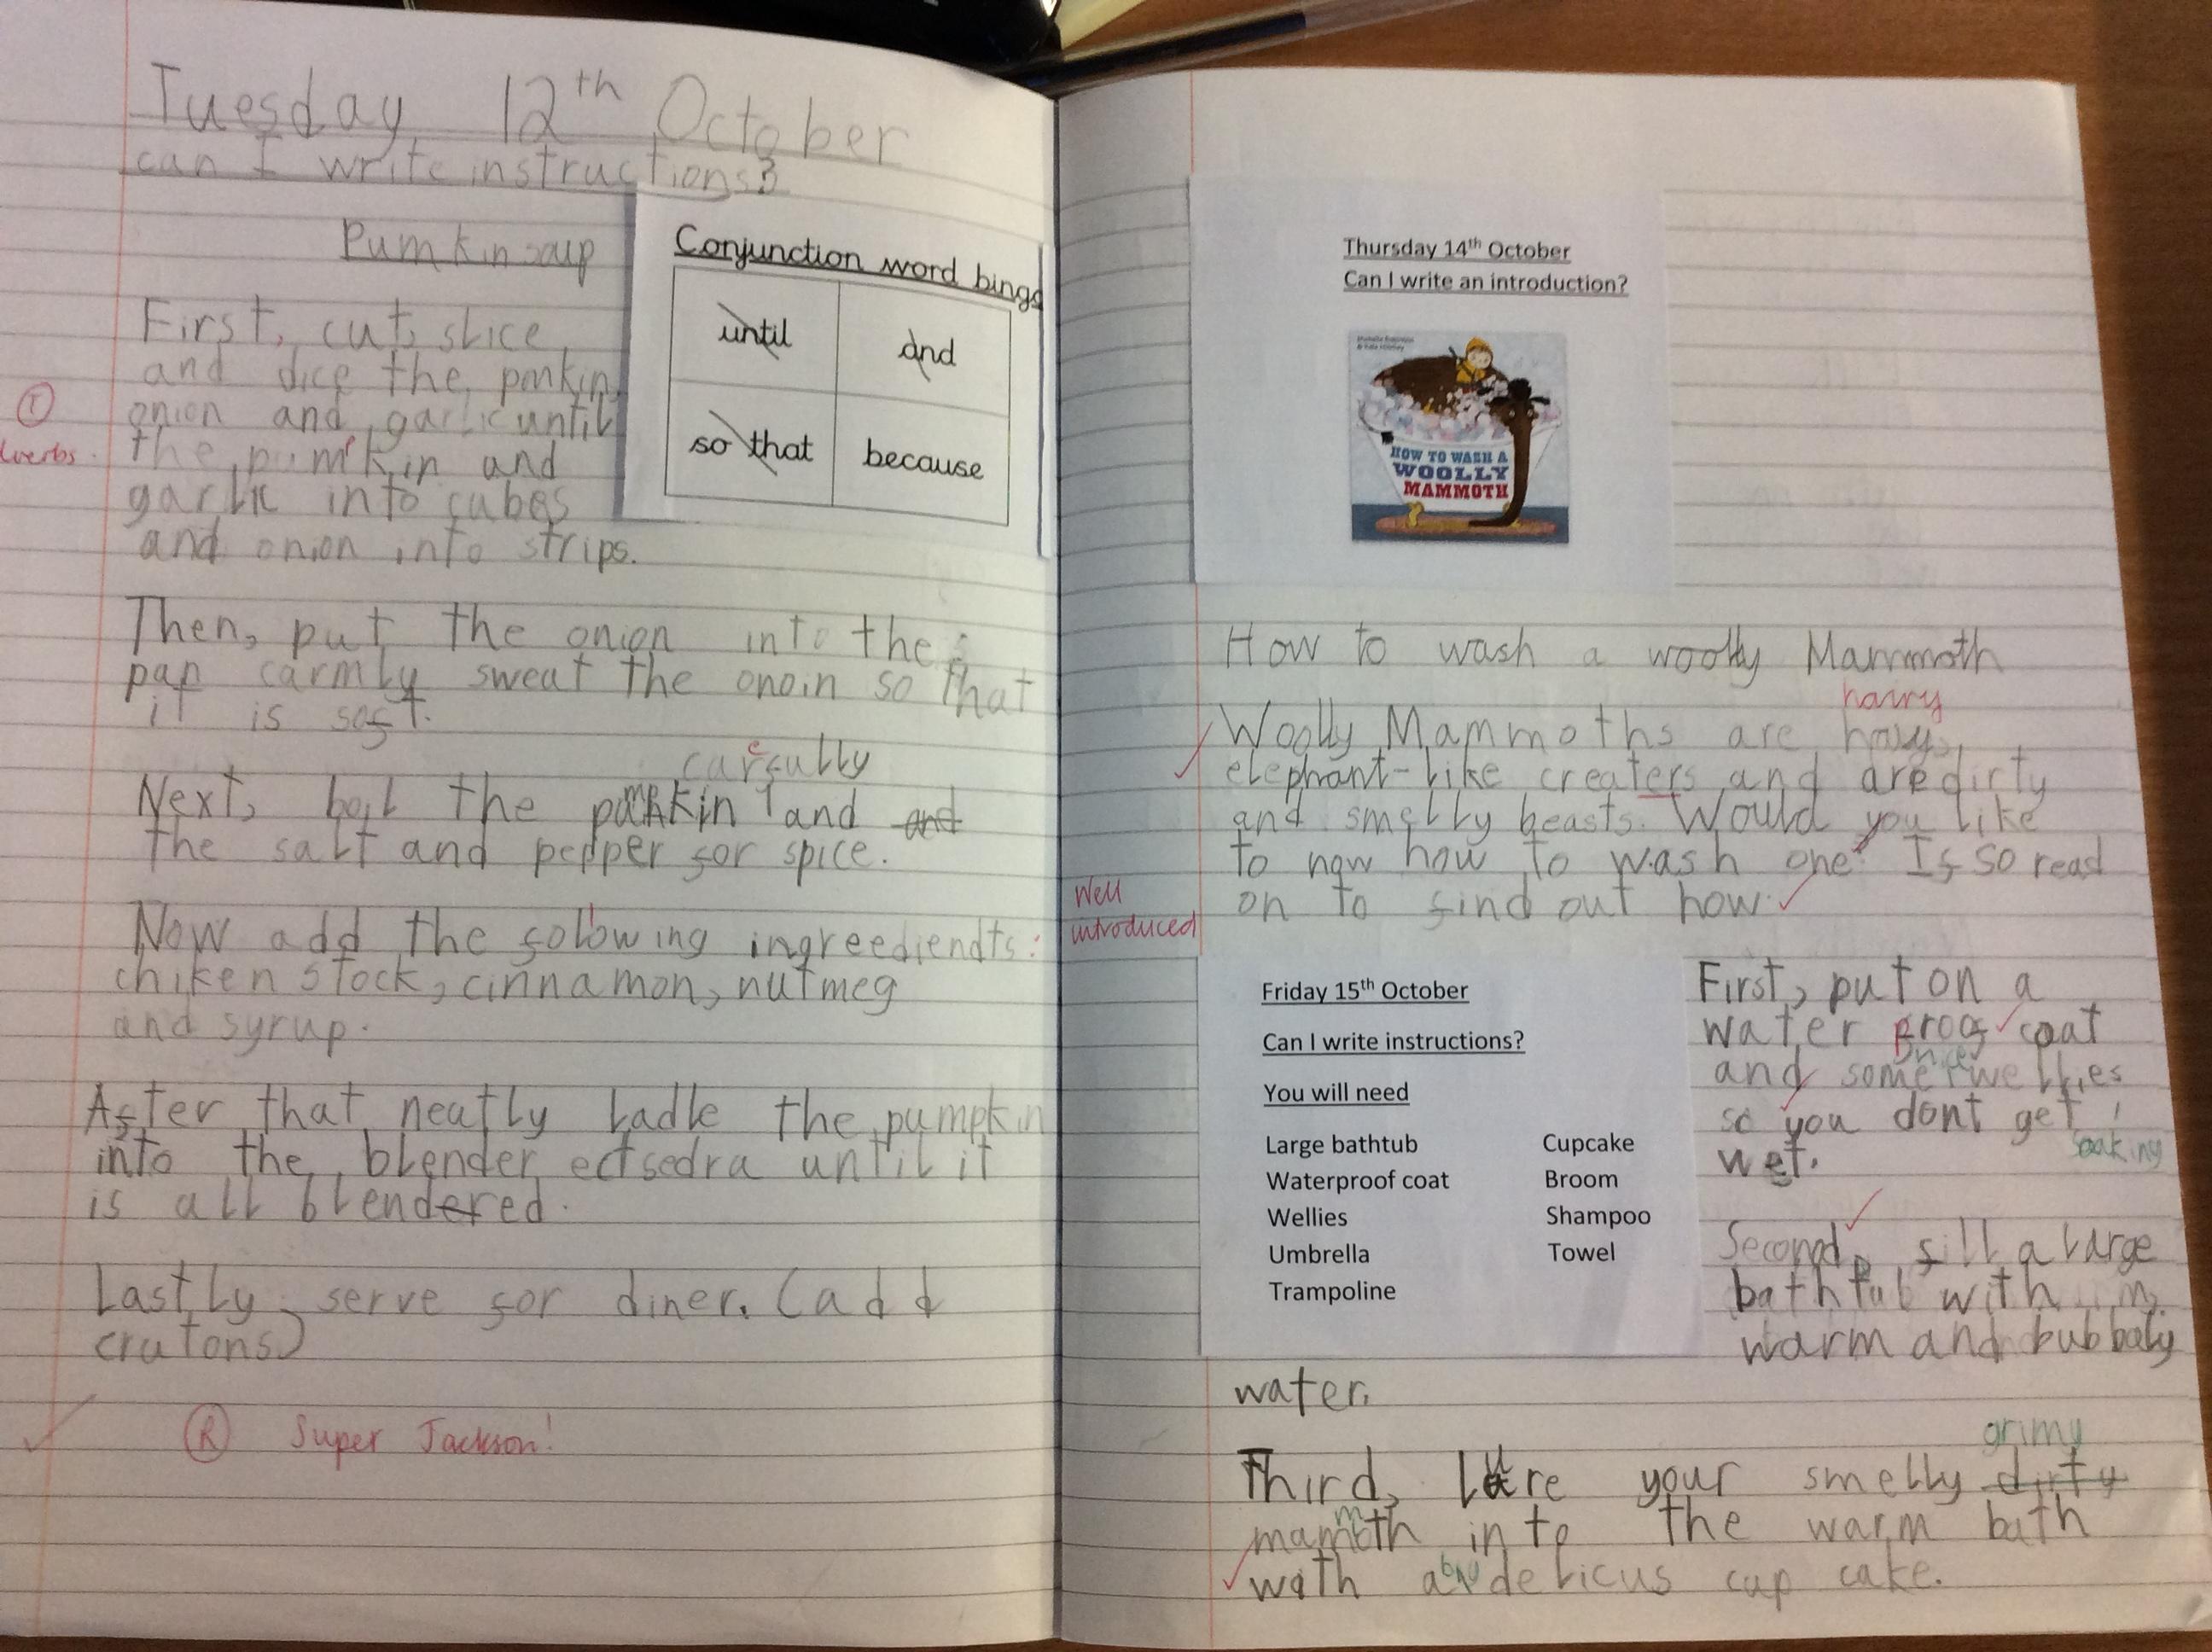 Tuesday 12th October
can I write instructions?
Pumkin soup
Conjunction word bingo
until and
so that because
First, cut, slice
and dice the pnkin,
onion and garlic until
the pumkin and
garlic into cubes
and onion into strips.
verbs.
Then, put the onion into the
pan carmly sweat the onoin so that
it is soft.
carefully
Next, boil the pumpkin and and
the salt and pepper for spice.
Now add the following ingreediendts:
chiken stock, cinnamon, nutmeg
and syrup.
After that neatly ladle the pumpkin
into the blender ectsedra until it
is all blendered.
Lastly, serve for diner. (add
crutons)
R Super Jackson!
Thursday 14th October
Can I write an introduction?
HOW TO WASH A
WOOLLY
MAMMOTH
How to wash a woolly Mammoth
hairy
Woolly Mammoths are hairy,
elephant-like creaters and are dirty
and smelly beasts. Would you like
to now how to wash one? If so read
on to find out how.
Well
introduced
Friday 15th October
Can I write instructions?
You will need
Large bathtub Cupcake
Waterproof coat Broom
Wellies Shampoo
Umbrella Towel
Trampoline
First, put on a
water proof coat
and some nice wellies
so you dont get
soaking
wet.
Second, fill a large
bathtub with
warm and bubbaly
water.
grimy
Third, lure your smelly dirty
mammoth into the warm bath
with a delicus cup cake.